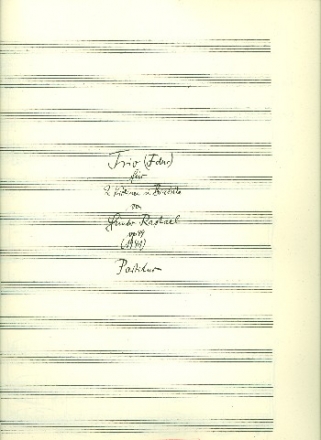 Trio (F dur)
für
2 Violinen u. Bratsche
von
Günter Raphael
op 44
(1941)
Partitur